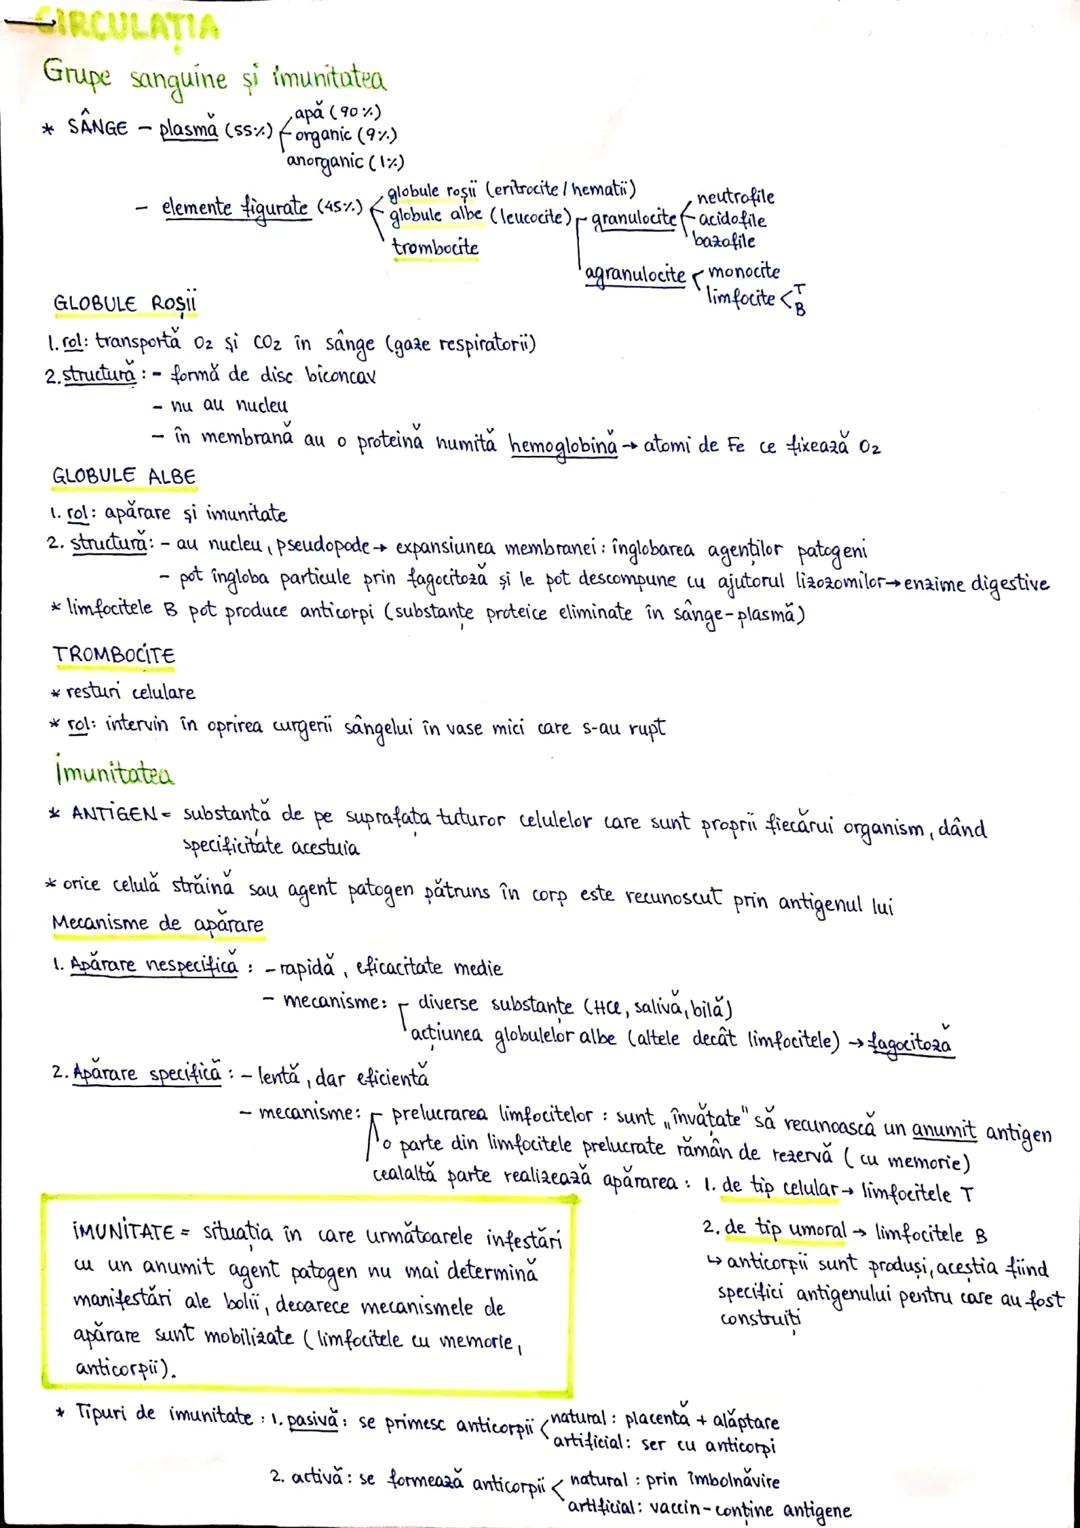 CIRCULAȚIA
Grupe sanguine și imunitatea
* SÂNGE - plasmă (55%) apă (90%)
organic (9%)
anorganic (1%)
- elemente figurate (45%) globule roșii (eritrocite / hematii)
globule albe (leucocite) granulocite neutrofile
acidofile
bazofile
trombocite
agranulocite monocite
limfocite < T
B
GLOBULE ROȘII
1. rol: transportă O2 și CO2 în sânge (gaze respiratorii)
2. structură: - formă de disc biconcav
- nu au nucleu
- în membrană au o proteină numită hemoglobină → atomi de Fe ce fixează O2
GLOBULE ALBE
1. rol: apărare și imunitate
2. structură: - au nucleu, pseudopode → expansiunea membranei: înglobarea agenților patogeni
- pot îngloba particule prin fagocitoză și le pot descompune cu ajutorul lizozomilor → enzime digestive
* limfocitele B pot produce anticorpi (substanțe proteice eliminate în sânge-plasmă)
TROMBOCITE
* resturi celulare
* rol: intervin în oprirea curgerii sângelui în vase mici care s-au rupt
Imunitatea
* ANTIGEN = substanță de pe suprafața tuturor celulelor care sunt proprii fiecărui organism, dând
specificitate acestuia
* orice celulă străină sau agent patogen pătruns în corp este recunoscut prin antigenul lui
Mecanisme de apărare
1. Apărare nespecifică: - rapidă, eficacitate medie
- mecanisme: diverse substanțe (HCl, salivă, bilă)
acțiunea globulelor albe (altele decât limfocitele) → fagocitoză
2. Apărare specifică: - lentă, dar eficientă
- mecanisme: prelucrarea limfocitelor: sunt „învățate" să recunoască un anumit antigen
o parte din limfocitele prelucrate rămân de rezervă (cu memorie)
cealaltă parte realizează apărarea: 1. de tip celular → limfocitele T
2. de tip umoral → limfocitele B
↳ anticorpii sunt produși, aceștia fiind
specifici antigenului pentru care au fost
construiți
IMUNITATE = situația în care următoarele infestări
cu un anumit agent patogen nu mai determină
manifestări ale bolii, deoarece mecanismele de
apărare sunt mobilizate (limfocitele cu memorie,
anticorpii).
* Tipuri de imunitate: 1. pasivă: se primesc anticorpii < natural: placentă + alăptare
artificial: ser cu anticorpi
2. activă: se formează anticorpii < natural: prin îmbolnăvire
artificial: vaccin - conține antigene